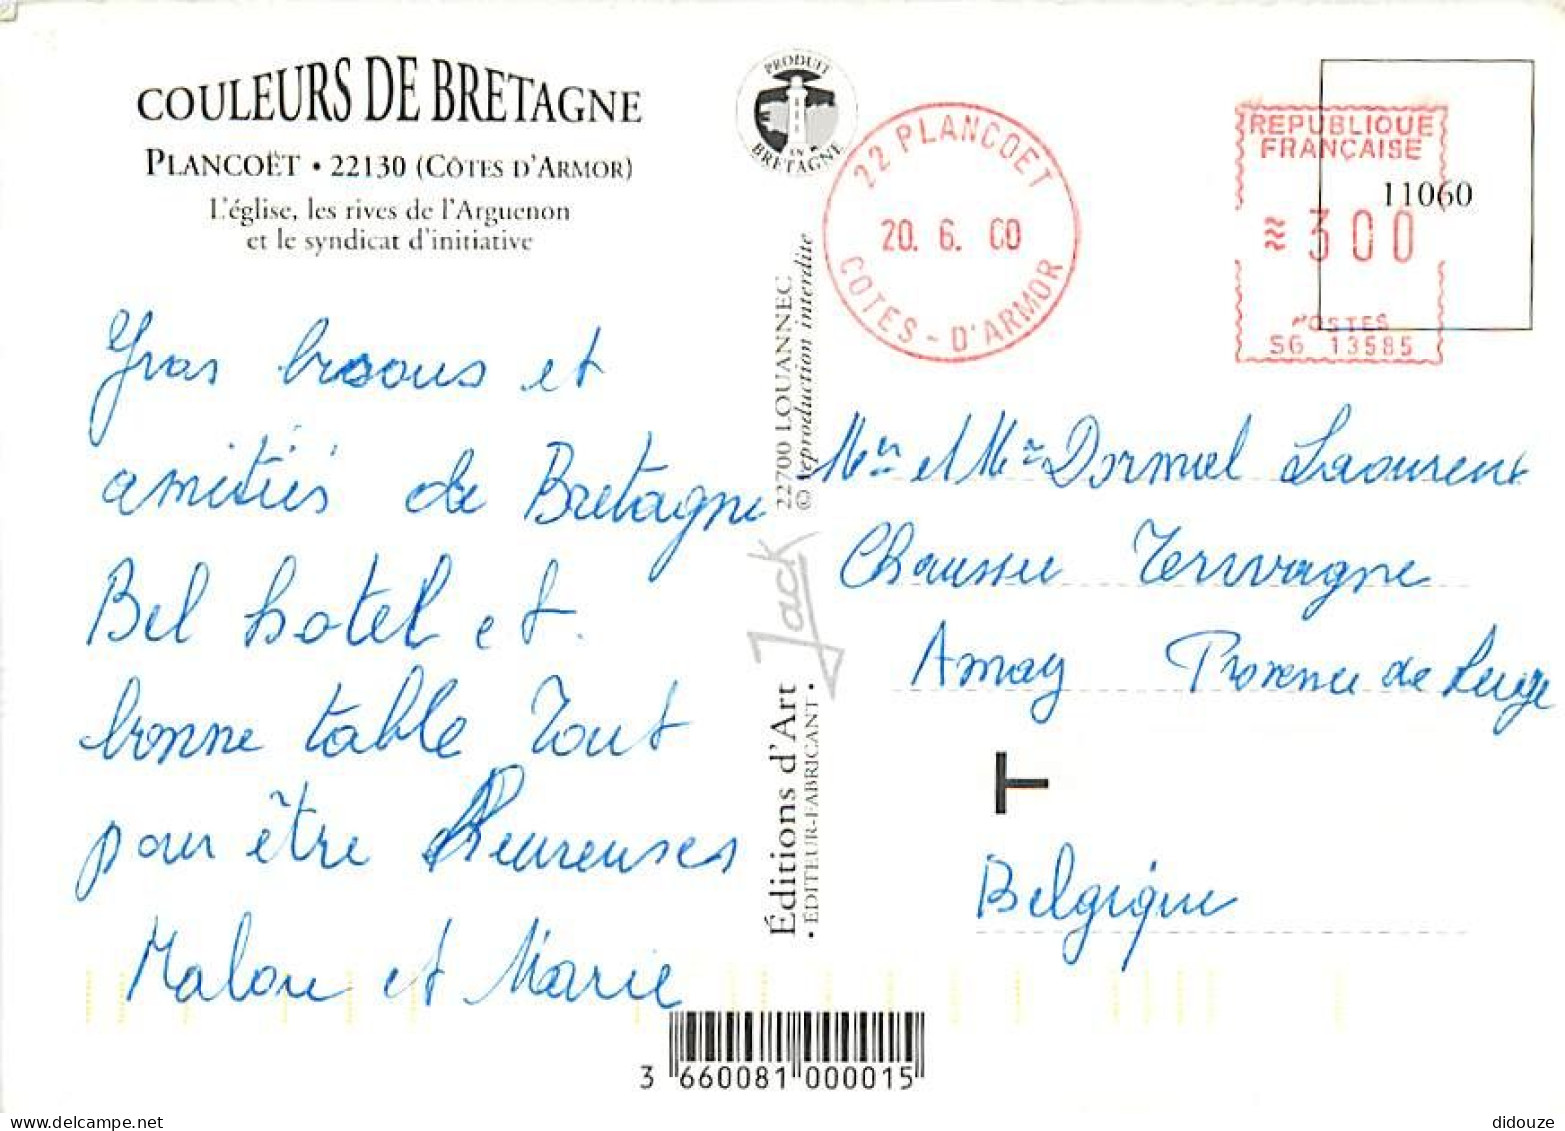 COULEURS DE BRETAGNE
PLANCOËT • 22130 (CÔTES D'ARMOR)
L'église, les rives de l'Arguenon
et le syndicat d'initiative
PRODUIT
EN
BRETAGNE
22 PLANCOET
20. 6. 00
COTES - D'ARMOR
REPUBLIQUE
FRANÇAISE
11060
300
POSTES
SG 13585
Gros bisous et
amitiés de Bretagne
Bel hotel et
bonne table Tout
pour être Heureuses
Malou et Marie
22700 LOUANNEC
© reproduction interdite
Jack
Éditions d'Art
• ÉDITEUR-FABRICANT •
Mr et Me Dormal Laurent
Chaussee Terwagne
Amay Provence de Liege
T
Belgique
3 660081 000015
didouze